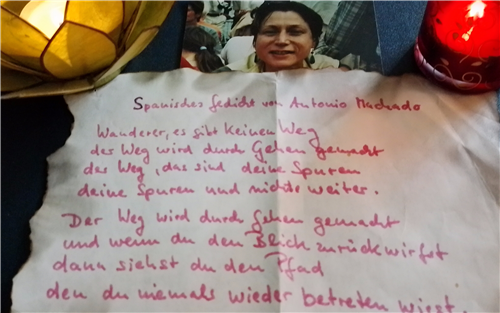 Spanisches Gedicht von Antonio Machado
Wanderer, es gibt keinen Weg
der Weg wird durch Gehen gemacht
der Weg, das sind deine Spuren
deine Spuren und nichts weiter.
Der Weg wird durch Gehen gemacht
und wenn du den Blick zurückwirfst
dann siehst du den Pfad
den du niemals wieder betreten wirst.